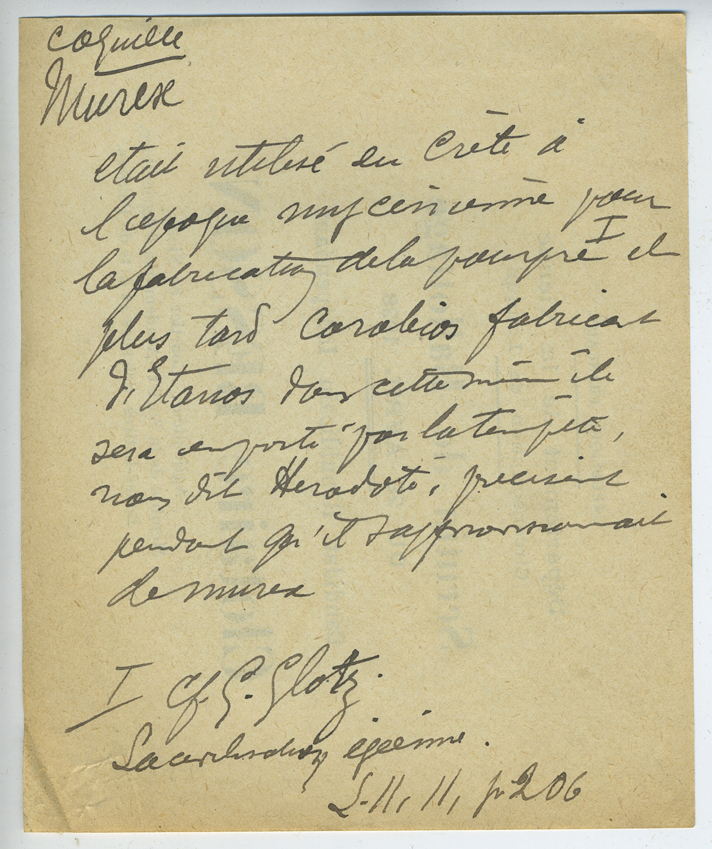 coquille
Murex
était utilisé en Crète à
l'epoque mycénienne pour
la fabrication de la pourpre I et
plus tard Corobios fabricant
d'Etanos dans cette même île
sera emporté par la tempête,
nous dit Herodote, précisent
pendant qu'il s'approvisionnait
de murex
I cf. G. Glotz.
La civilisation égéenne.
L. II, II, p. 206